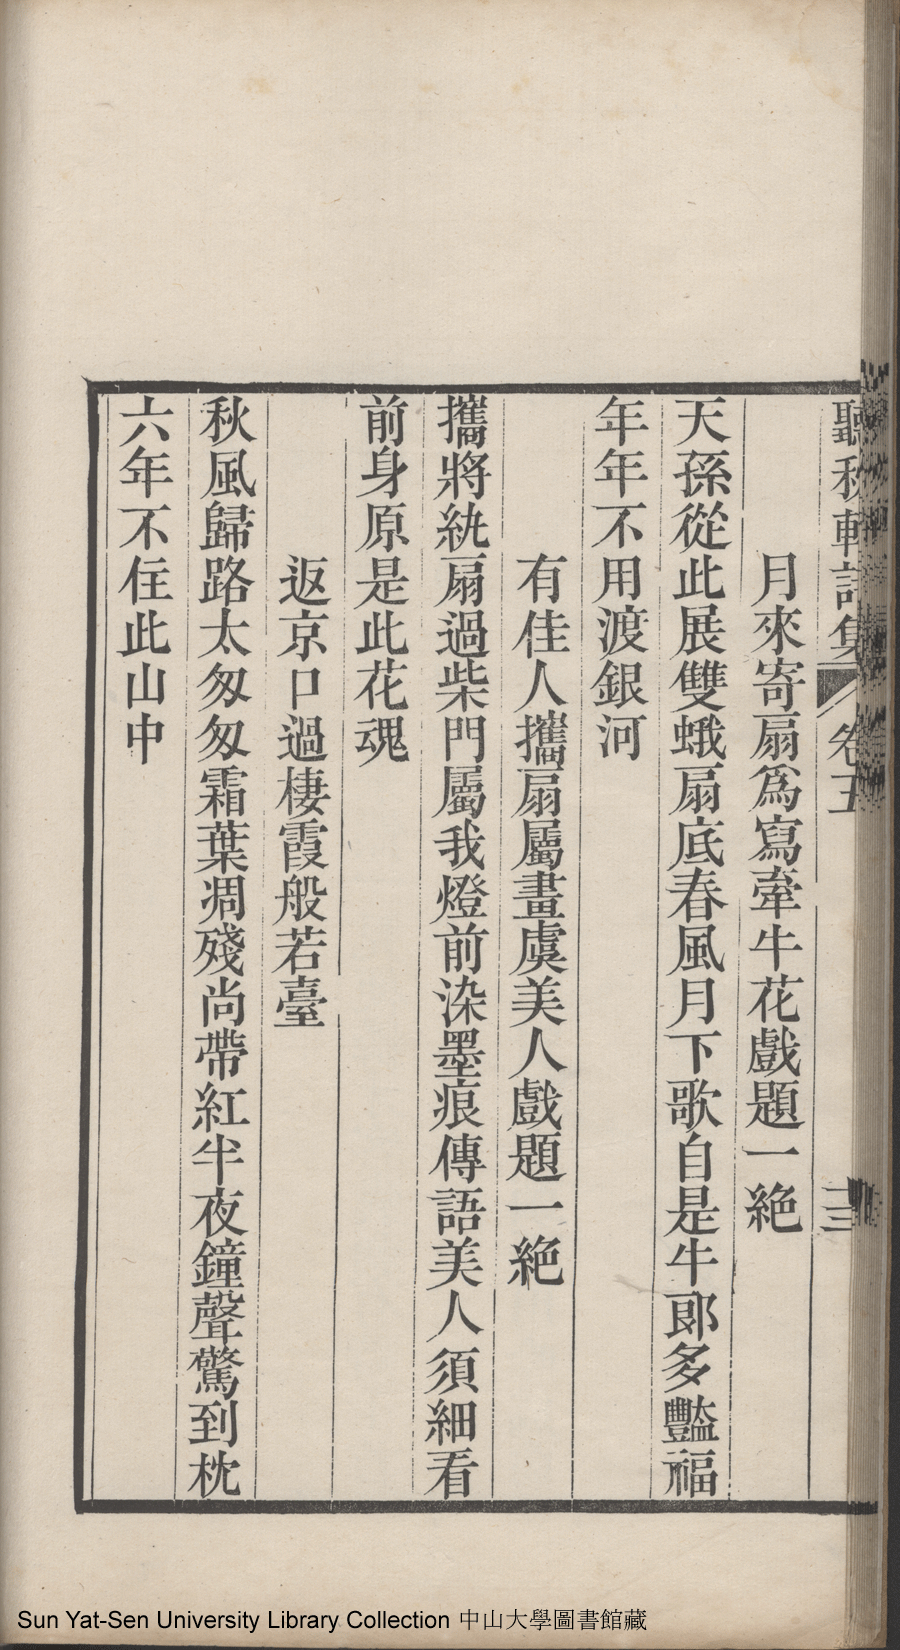 聽秋軒詩集 卷五 三
月來寄扇爲寫牽牛花戲題一絶
天孫從此展雙蛾扇底春風月下歌自是牛郎多豔福
年年不用渡銀河
有佳人攜扇屬畫虞美人戲題一絶
攜將紈扇過柴門屬我燈前染墨痕傳語美人須細看
前身原是此花魂
返京口過棲霞般若臺
秋風歸路太匆匆霜葉凋殘尚帶紅半夜鐘聲驚到枕
六年不住此山中
Sun Yat-Sen University Library Collection 中山大學圖書館藏